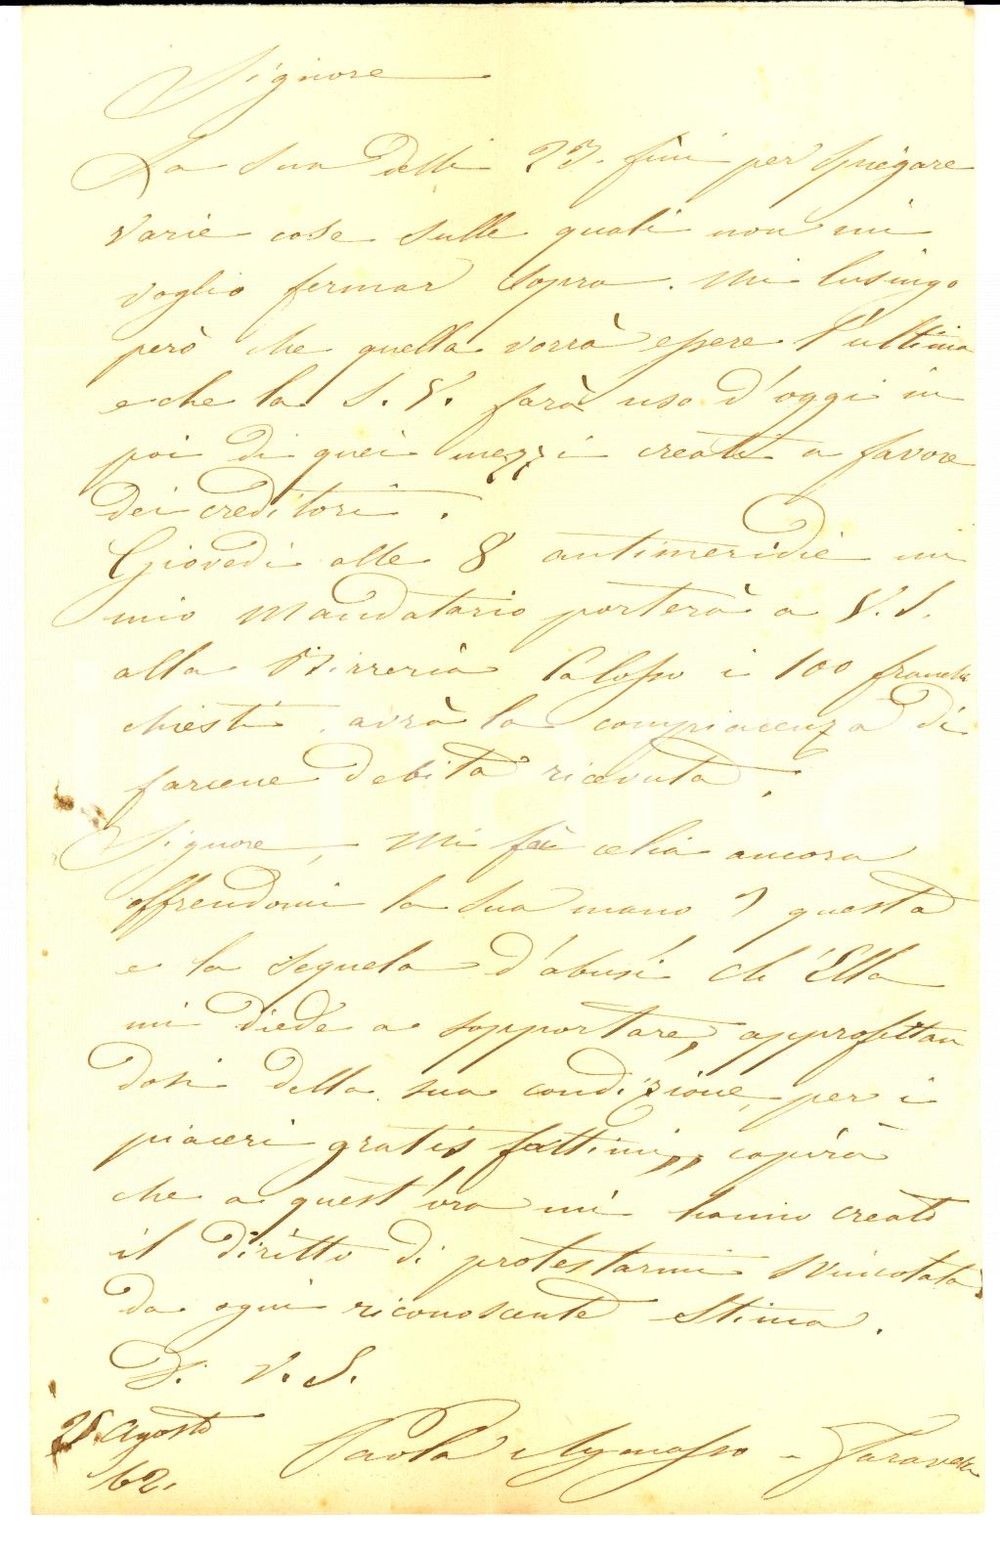 Signore
La sua delli 23. finì per spiegare
varie cose sulle quali non mi
voglio fermar sopra. Mi lusingo
però che quella vorrà essere l'ultima
e che la S. V. farà uso d'oggi in
poi di quei mezzi creati a favore
dei creditori.
Giovedi alle 8 antimeridie un
mio mandatario porterà a V. S.
alla Birreria Calosso i 100 franchi
chiesti. avrà la compiacenza di
farcene debita ricevuta.
Signore, mi fa celia ancora
offrendomi la sua mano? questa
e la sequela d'abusi ch'Ella
mi diede a sopportare, approfittan
dosi della sua condizione, per i
piaceri gratis fattimi, capirà
che a quest'ora mi hanno creato
il diritto di protestarmi svincolata
da ogni riconoscente stima.
D. V. S.
25 Agosto
62.
Paola Aymasso - Taravera